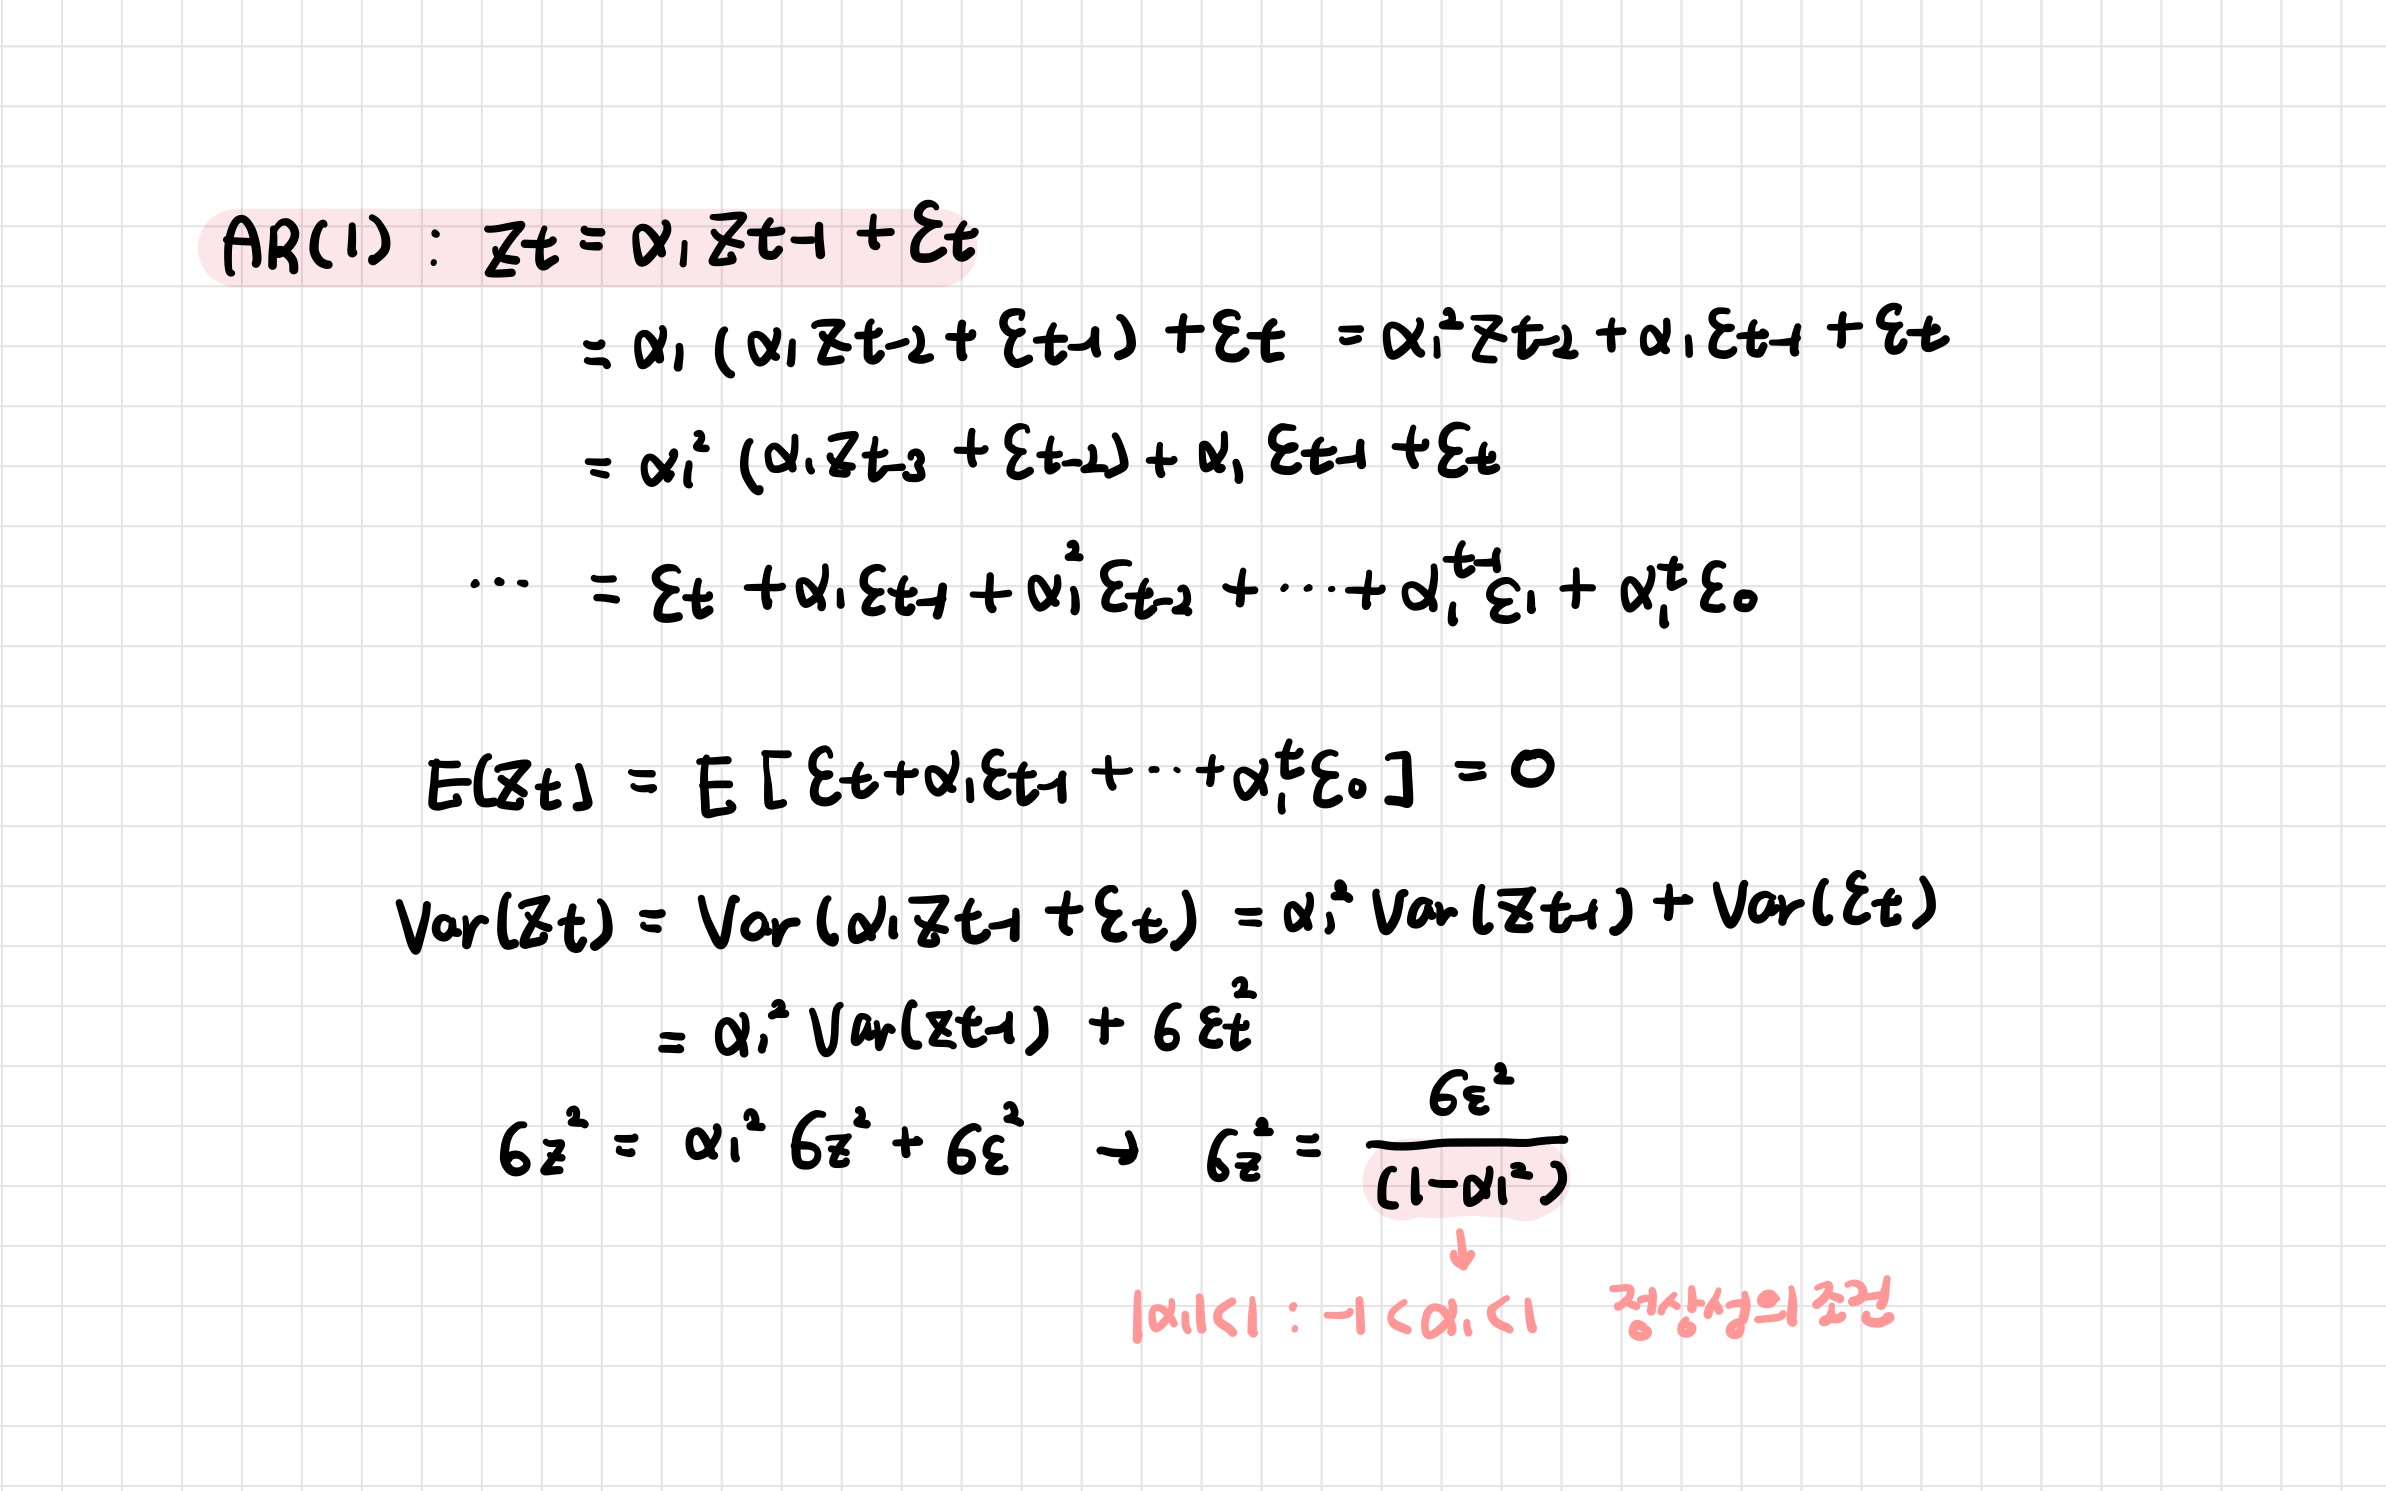 AR(1) : Zt = α₁ Zt-1 + εt
= α₁ (α₁ Zt-2 + εt-1) + εt = α₁² Zt-2 + α₁ εt-1 + εt
= α₁² (α₁ Zt-3 + εt-2) + α₁ εt-1 + εt
... = εt + α₁ εt-1 + α₁² εt-2 + ... + α₁ᵗ⁻¹ ε₁ + α₁ᵗ ε₀
E(Zt) = E [ εt + α₁ εt-1 + ... + α₁ᵗ ε₀ ] = 0
Var(Zt) = Var(α₁ Zt-1 + εt) = α₁² Var(Zt-1) + Var(εt)
= α₁² Var(Zt-1) + σεt²
σz² = α₁² σz² + σε² → σz² = σε² / (1-α₁²)
↓
|α₁|<1 : -1 < α₁ < 1 정상성의 조건